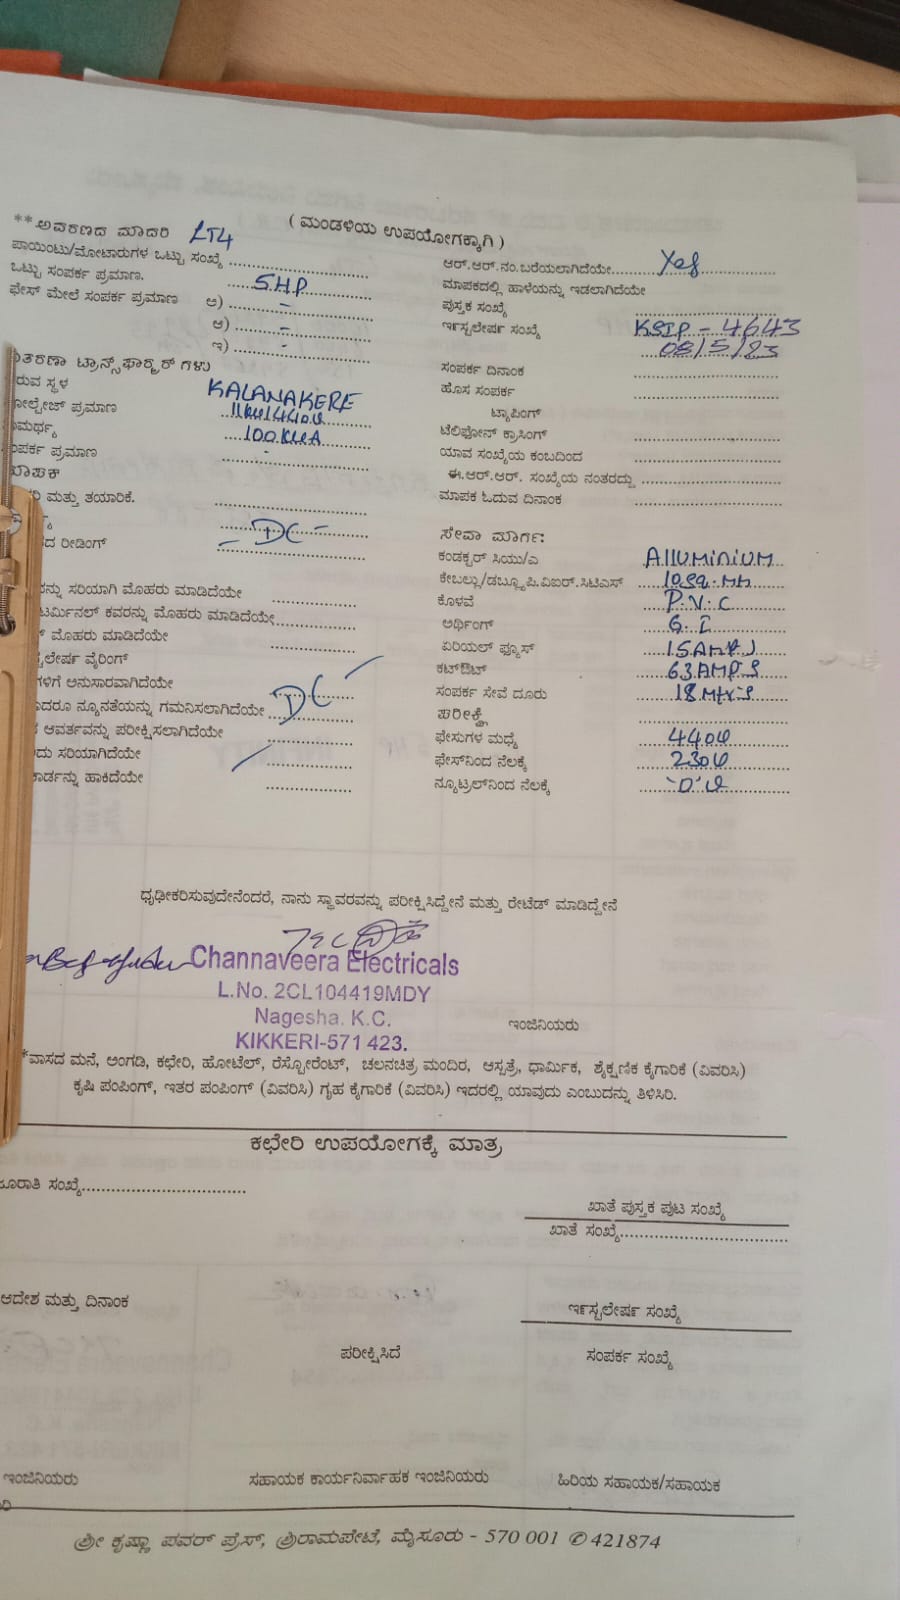 ( ಮಂಡಳಿಯ ಉಪಯೋಗಕ್ಕಾಗಿ )
**ಅವರಣದ ಮಾದರಿ LT4
ಪಾಯಿಂಟು/ಮೋಟಾರುಗಳ ಒಟ್ಟು ಸಂಖ್ಯೆ ....................
ಒಟ್ಟು ಸಂಪರ್ಕ ಪ್ರಮಾಣ. 5.H.P
ಫೇಸ್ ಮೇಲೆ ಸಂಪರ್ಕ ಪ್ರಮಾಣ ಅ) ..... - .....
ಆ) ..... - .....
ಇ) ..... - .....
ಟ್ರಾನ್ಸ್‌ಫಾರ್ಮರ್ ಗಳು
ಸ್ಥಳ KALANAKERE
ಪ್ರಮಾಣ
100 KVA
ಪ್ರಮಾಣ ..... - .....
ಮಾಪಕ
ಮತ್ತು ತಯಾರಿಕೆ. ....................
DC
ರೀಡಿಂಗ್ ....................
ಸರಿಯಾಗಿ ಮೊಹರು ಮಾಡಿದೆಯೇ ....................
ಟರ್ಮಿನಲ್ ಕವರನ್ನು ಮೊಹರು ಮಾಡಿದೆಯೇ....................
ಮೊಹರು ಮಾಡಿದೆಯೇ ....................
ವೈರಿಂಗ್
ಅನುಸಾರವಾಗಿದೆಯೇ
ನ್ಯೂನತೆಯನ್ನು ಗಮನಿಸಲಾಗಿದೆಯೇ DC
ಆವರ್ತವನ್ನು ಪರೀಕ್ಷಿಸಲಾಗಿದೆಯೇ ....................
ಸರಿಯಾಗಿದೆಯೇ ....................
ಹಾಕಿದೆಯೇ ....................
ಆರ್.ಆರ್.ನಂ.ಬರೆಯಲಾಗಿದೆಯೇ........ Yes ........
ಮಾಪಕದಲ್ಲಿ ಹಾಳೆಯನ್ನು ಇಡಲಾಗಿದೆಯೇ
ಪುಸ್ತಕ ಸಂಖ್ಯೆ ....................
ಇನ್‌ಸ್ಟಲೇಷನ್ ಸಂಖ್ಯೆ KSIP - 4643
08/5/23
ಸಂಪರ್ಕ ದಿನಾಂಕ ....................
ಹೊಸ ಸಂಪರ್ಕ ....................
ಟ್ಯಾಪಿಂಗ್
ಟೆಲಿಫೋನ್ ಕ್ರಾಸಿಂಗ್ ....................
ಯಾವ ಸಂಖ್ಯೆಯ ಕಂಬದಿಂದ ....................
ಈ.ಆರ್.ಆರ್. ಸಂಖ್ಯೆಯ ನಂತರದ್ದು ....................
ಮಾಪಕ ಓದುವ ದಿನಾಂಕ ....................
ಸೇವಾ ಮಾರ್ಗ:
ಕಂಡಕ್ಟರ್ ಸಿಯು/ಎ AllUMiNiUM
ಕೇಬಲ್ಲು/ಡಬ್ಲ್ಯೂ.ಪಿ.ವಿಐಆರ್.ಸಿಟಿಎಸ್ 10sq.MM
ಕೊಳವೆ P.V.C
ಅರ್ಥಿಂಗ್ G.I
ಏರಿಯಲ್ ಫ್ಯೂಸ್ 15AMPS
ಕಟ್‌ಔಟ್ 63AMPS
ಸಂಪರ್ಕ ಸೇವೆ ದೂರು 18 Mtrs
ಪರೀಕ್ಷೆ ....................
ಫೇಸುಗಳ ಮಧ್ಯೆ 440V
ಫೇಸ್‌ನಿಂದ ನೆಲಕ್ಕೆ 230V
ನ್ಯೂಟ್ರಲ್‌ನಿಂದ ನೆಲಕ್ಕೆ 'O' V
ಧೃಢೀಕರಿಸುವುದೇನೆಂದರೆ, ನಾನು ಸ್ಥಾವರವನ್ನು ಪರೀಕ್ಷಿಸಿದ್ದೇನೆ ಮತ್ತು ರೇಟೆಡ್ ಮಾಡಿದ್ದೇನೆ
Channaveera Electricals
L.No. 2CL104419MDY
Nagesha. K.C.
KIKKERI-571 423.
ಇಂಜಿನಿಯರು
*ವಾಸದ ಮನೆ, ಅಂಗಡಿ, ಕಛೇರಿ, ಹೋಟೆಲ್, ರೆಸ್ಟೋರೆಂಟ್, ಚಲನಚಿತ್ರ ಮಂದಿರ, ಆಸ್ಪತ್ರೆ, ಧಾರ್ಮಿಕ, ಶೈಕ್ಷಣಿಕ ಕೈಗಾರಿಕೆ (ವಿವರಿಸಿ)
ಕೃಷಿ ಪಂಪಿಂಗ್, ಇತರ ಪಂಪಿಂಗ್ (ವಿವರಿಸಿ) ಗೃಹ ಕೈಗಾರಿಕೆ (ವಿವರಿಸಿ) ಇದರಲ್ಲಿ ಯಾವುದು ಎಂಬುದನ್ನು ತಿಳಿಸಿರಿ.
ಕಛೇರಿ ಉಪಯೋಗಕ್ಕೆ ಮಾತ್ರ
ಸಂಖ್ಯೆ..............................
ಖಾತೆ ಪುಸ್ತಕ ಪುಟ ಸಂಖ್ಯೆ
ಖಾತೆ ಸಂಖ್ಯೆ..............................
ಆದೇಶ ಮತ್ತು ದಿನಾಂಕ
ಇನ್‌ಸ್ಟಲೇಷನ್ ಸಂಖ್ಯೆ
ಪರೀಕ್ಷಿಸಿದೆ
ಸಂಪರ್ಕ ಸಂಖ್ಯೆ
ಇಂಜಿನಿಯರು
ಸಹಾಯಕ ಕಾರ್ಯನಿರ್ವಾಹಕ ಇಂಜಿನಿಯರು
ಹಿರಿಯ ಸಹಾಯಕ/ಸಹಾಯಕ
ಶ್ರೀ ಕೃಷ್ಣಾ ಪವರ್ ಪ್ರೆಸ್, ಶ್ರೀರಾಮಪೇಟೆ, ಮೈಸೂರು - 570 001 ✆ 421874